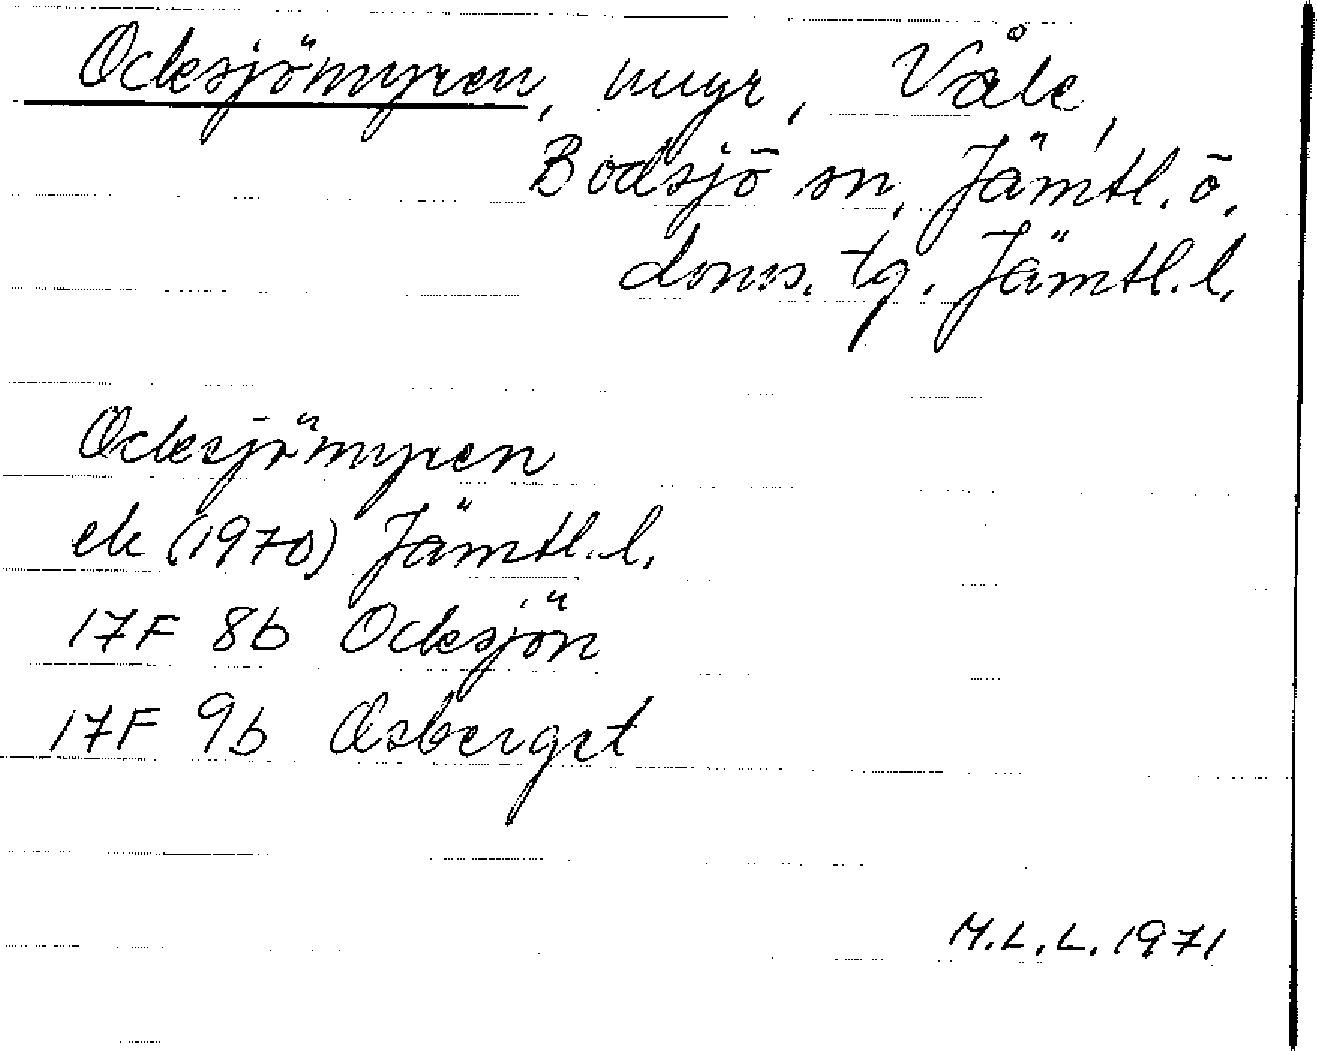 Ocksjömyren, myr, Våle,
Bodsjö sn, Jämtl. ö.
doms. tg. Jämtl. l.
Ocksjömyren
ek (1970) Jämtl. l.
17F 8b Ocksjön
17F 9b Åsberget
M.L.L. 1971